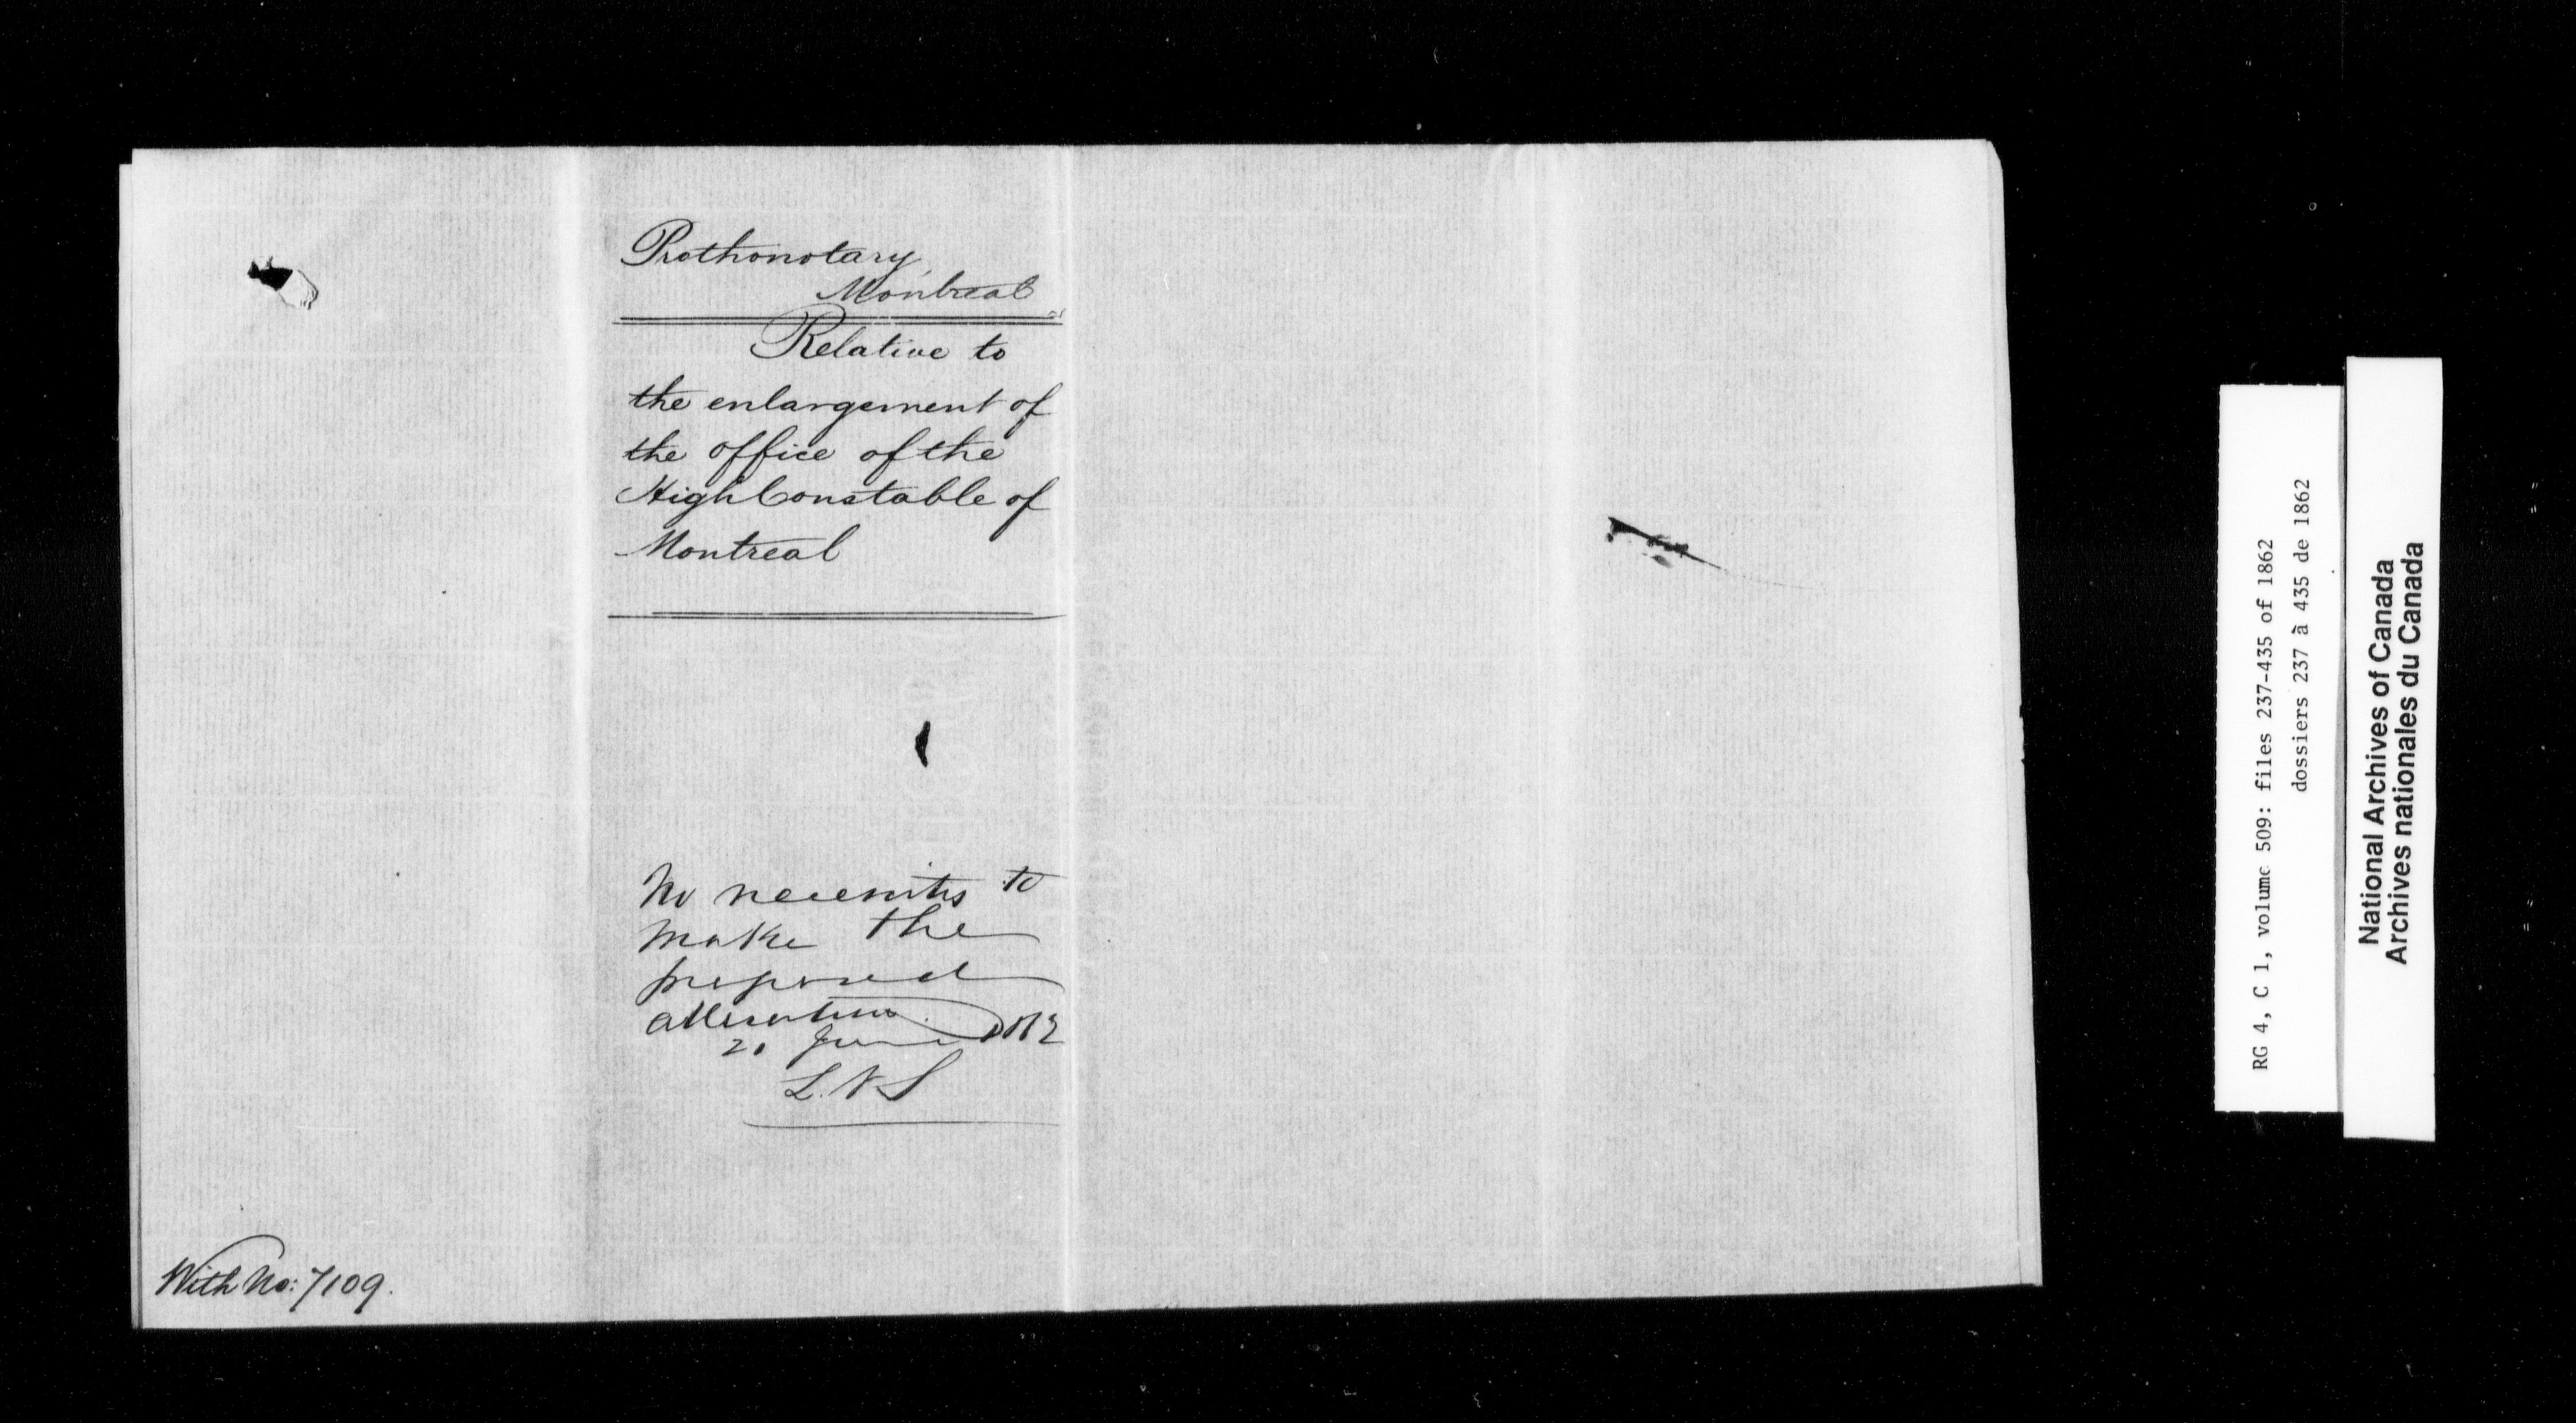 Prothonotary,
Montreal
Relative to
the enlargement of
the office of the
High Constable of
Montreal
No necessity to
make the
proposed
alteration.
June
L.V.S
With No: 7109.
RG 4, C 1, volume 509: files 237-435 of 1862
dossiers 237 à 435 de 1862
National Archives of Canada
Archives nationales du Canada